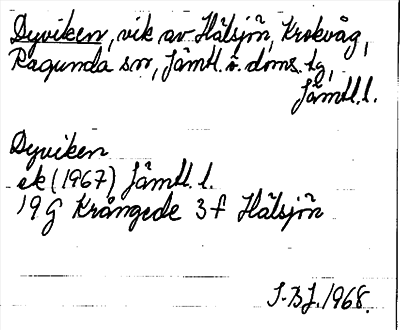 Dyviken, vik av Hälsjön, Krokvåg,
Ragunda sn, Jämtl. ö. doms. tg,
Jämtl. l.
Dyviken
ek (1967) Jämtl. l.
19 G Krångede 3 f Hälsjön
I-BJ. 1968.